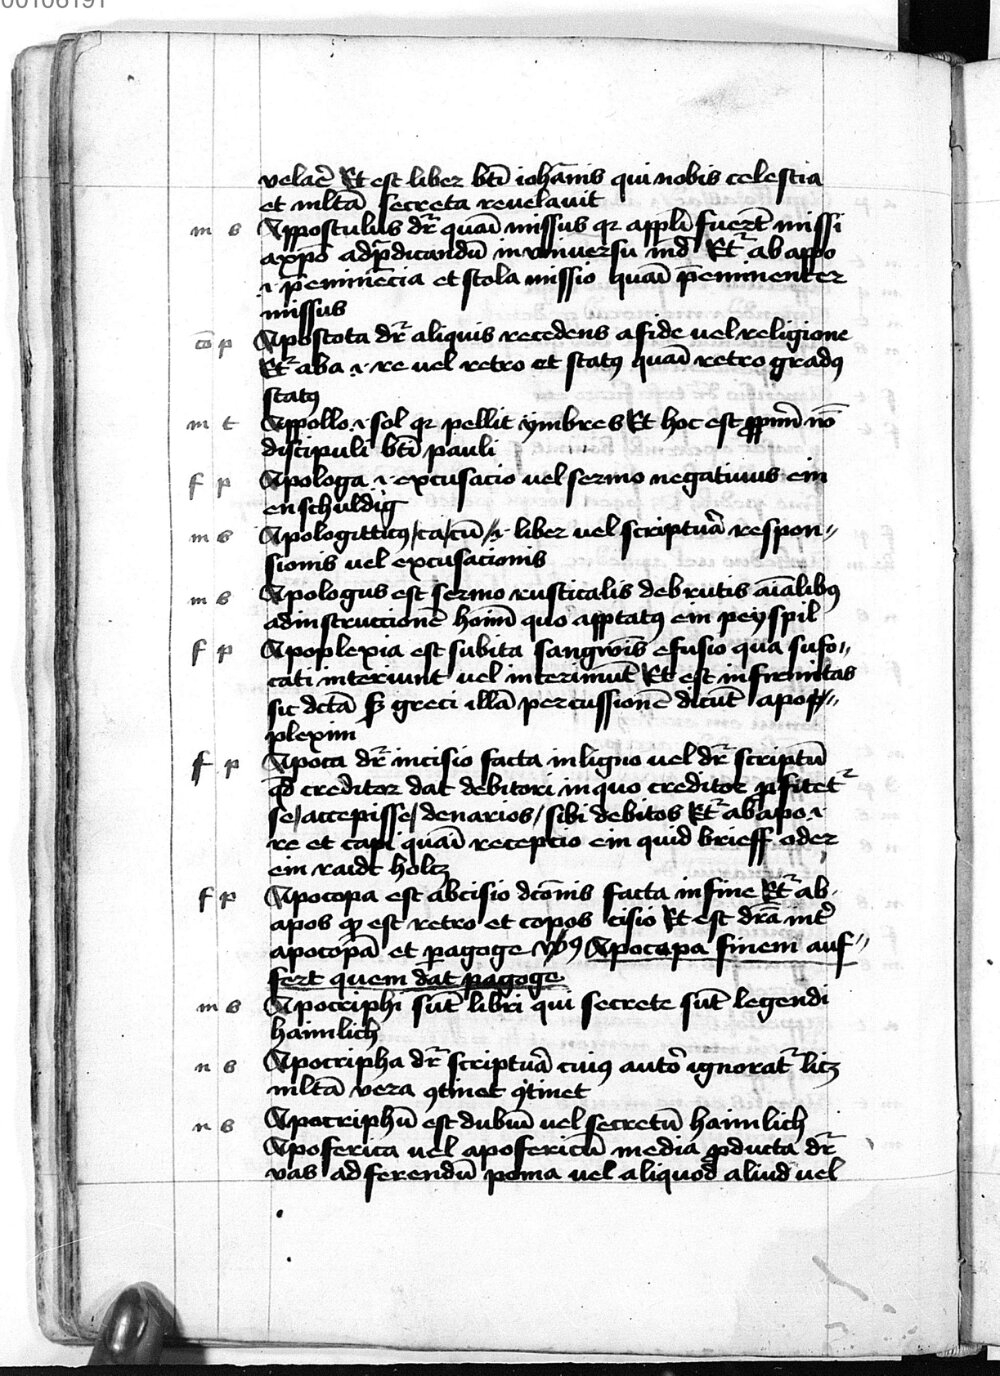 00106191
velac̄ Et est liber bt̄i ioh̄anis qui nobis celestia
et mltā secreta revelavit
m s Appostulus dr̄ quāi missus qr appl̄i fuerūt missi
a xp̄o ad p̄dicandū in vniversū mūd Et ab appo
.i. p̄eminēcia et stola missio quāi p̄eminenter
missus
cō p Apostota dr̄ aliquis recedens a fide vel religione
Et aba .i. re vel retro et statꝯ quāi retro gradꝯ
statꝯ
m t Appollo .i. sol qr pellit ymbres Et hoc est ꝓprīm nō
discipuli bt̄i pauli
f p Apologa .i. excusacio vel sermo negativus ein
enschuldig
m s Apologitticꝯ/ca/cū/.i. liber vel scriptur̄a respon〃
sionis vel excusacionis
m s Apologus est sermo rusticalis de brutis aīalibꝯ
ad instruccionē hoīm quo apptatꝯ ein peyspil
f p Apoplexia est subita sangwīs efusio qua sufo〃
cati interiunt vel interimūt Et est infirmitas
sic dctā ꝭ greci illā percussionē dicūt apop〃
plexim
f p Apoca dr̄ incisio facta in ligno vel dr̄ scriptū
qd̄ creditor dat debitori in quo creditor ꝓfitet̄
se/accepisse/denarios/sibi debitos Et ab apo .i.
re et capi quāi recepcio ein quid brieff oder
ein raidt holtz
f p Apocopa est abcisio dc̄onis facta in fine Et ab
apos qꝫ est retro et copos cisio Et est dr̄a int̄
apocopā et paragoge vs̄ꝯ Apocopa finem auf〃
fert quem dat pagoge
m s Apocriphi sūt libri qui secrete sūt legendi
haimlich
n s Apocripha dr̄ scriptur̄a cuiꝯ autor̄ ignorat̄ licꝫ
mltā vera ꝯtinet ꝯtinet
n s Apocriphū est dubiū vel secretū haimlich
Apoferica vel apofericū media ꝓducta dr̄
vas ad ferendū poma vel aliquod aliud vel